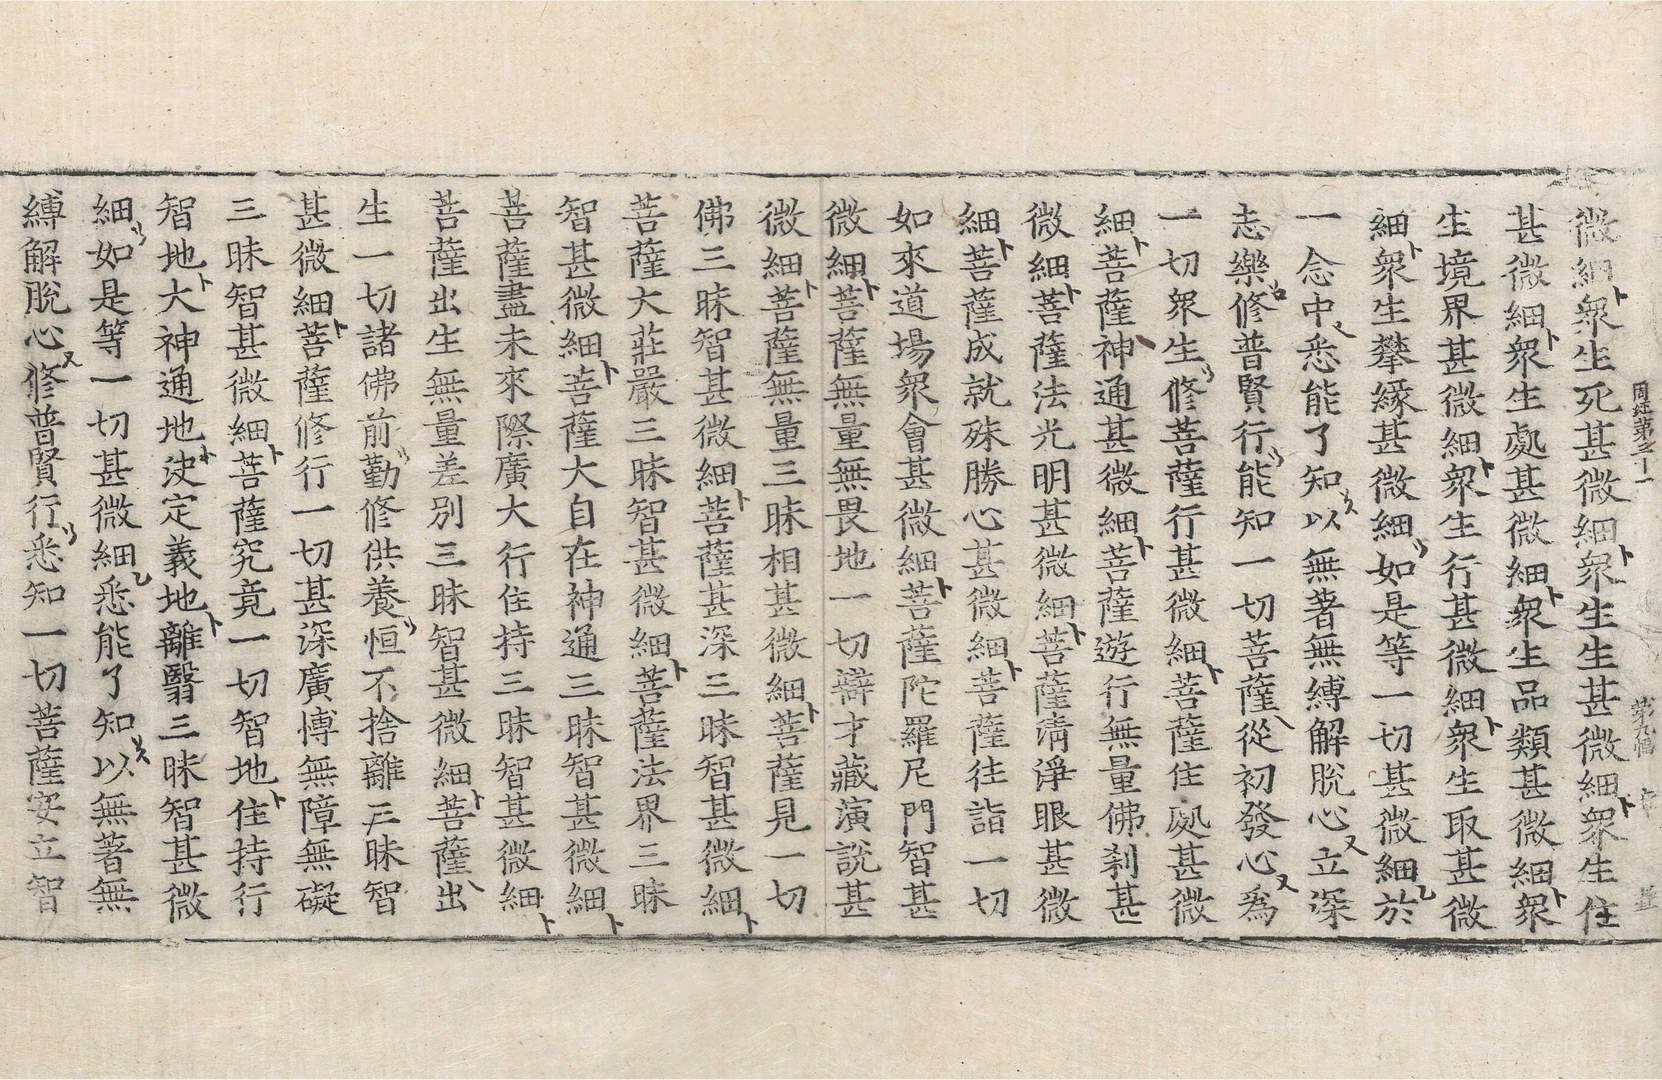 周経第三十一 第九幅
微細衆生死甚微細衆生生甚微細衆生住
甚微細衆生處甚微細衆生品類甚微細衆
生境界甚微細衆生行甚微細衆生取甚微
細衆生攀緣甚微細如是等一切甚微細於
一念中悉能了知以無著無縛解脫心立深
志樂修普賢行能知一切菩薩從初發心爲
一切衆生修菩薩行甚微細菩薩住處甚微
細菩薩神通甚微細菩薩遊行無量佛刹甚
微細菩薩法光明甚微細菩薩淸淨眼甚微
細菩薩成就殊勝心甚微細菩薩往詣一切
如來道場衆會甚微細菩薩陀羅尼門智甚
微細菩薩無量無畏地一切辯才藏演說甚
微細菩薩無量三昧相甚微細菩薩見一切
佛三昧智甚微細菩薩甚深三昧智甚微細
菩薩大莊嚴三昧智甚微細菩薩法界三昧
智甚微細菩薩大自在神通三昧智甚微細
菩薩盡未來際廣大行住持三昧智甚微細
菩薩出生無量差別三昧智甚微細菩薩出
生一切諸佛前勤修供養恒不捨離三昧智
甚微細菩薩修行一切甚深廣博無障無礙
三昧智甚微細菩薩究竟一切智地住持行
智地大神通地決定義地離翳三昧智甚微
細如是等一切甚微細悉能了知以無著無
縛解脫心修普賢行悉知一切菩薩安立智